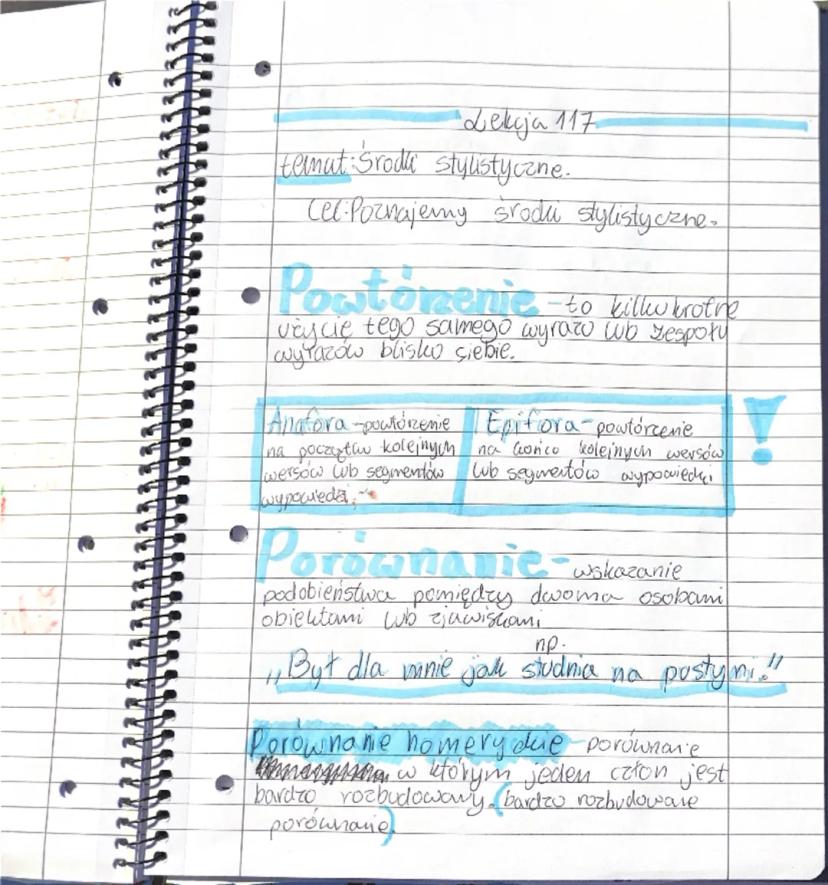 Lekcja 117
temat: Środki stylistyczne.
Cel: Poznajemy środki stylistyczne.
Powtórzenie - to kilkukrotne
użycie tego samego wyrazu lub zespołu
wyrazów blisko siebie.
Anafora - powtórzenie
na początku kolejnych
wersów lub segmentów
wypowiedzi.
Epifora - powtórzenie
na końcu kolejnych wersów
lub segmentów wypowiedzi
!
Porównanie - wskazanie
podobieństwa pomiędzy dwoma osobami
obiektami lub zjawiskami
np.
„Był dla mnie jak studnia na pustyni."
Porównanie homeryckie - porównanie
w którym jeden człon jest
bardzo rozbudowany. (bardzo rozbudowane
porównanie)